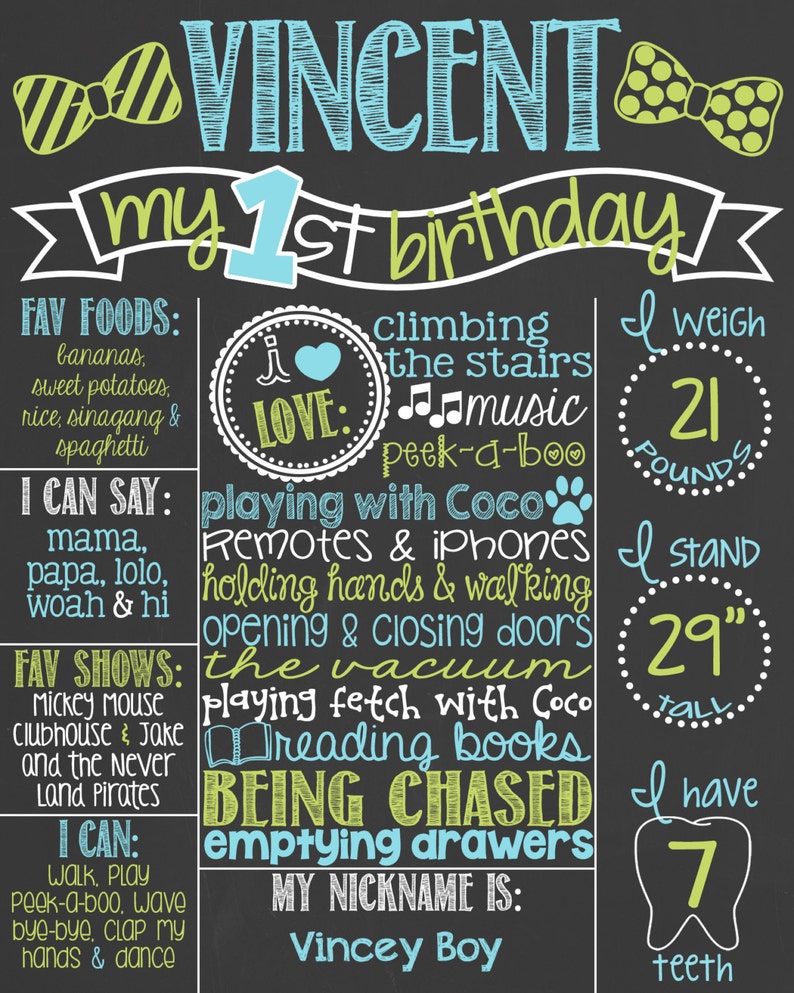 VINCENT
my 1st birthday
FAV FOODS:
bananas,
sweet potatoes,
rice, sinagang &
spaghetti
I CAN SAY:
mama,
papa, lolo,
woah & hi
FAV SHOWS:
Mickey Mouse
Clubhouse & Jake
and the Never
Land Pirates
I CAN:
Walk, Play
Peek-a-boo, Wave
bye-bye, Clap my
hands & dance
i
LOVE:
climbing
the stairs
music
peek-a-boo
playing with Coco
Remotes & iPhones
holding hands & walking
opening & closing doors
the vacuum
playing fetch with Coco
reading books
BEING CHASED
emptying drawers
MY NICKNAME IS:
Vincey Boy
I Weigh
21
POUNDS
I STAND
29”
TALL
I have
7
teeth